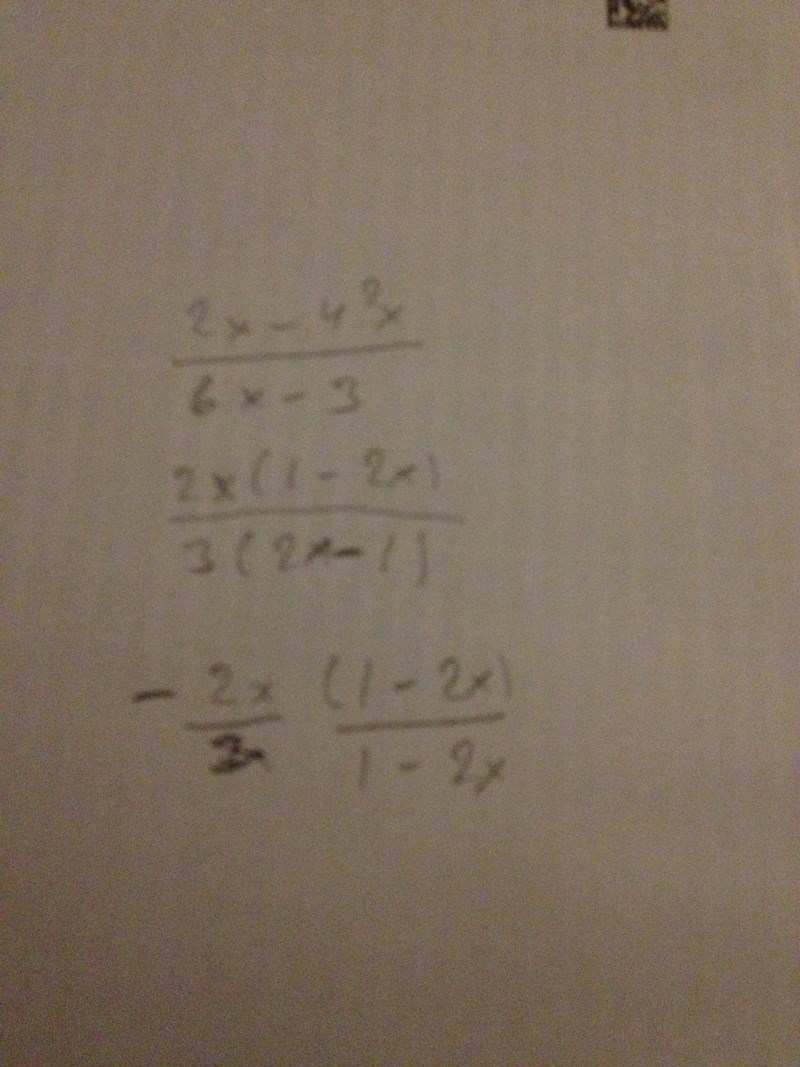 2x - 4²x
6x - 3
2x(1 - 2x)
3(2x - 1)
- 2x (1 - 2x)
3 1 - 2x